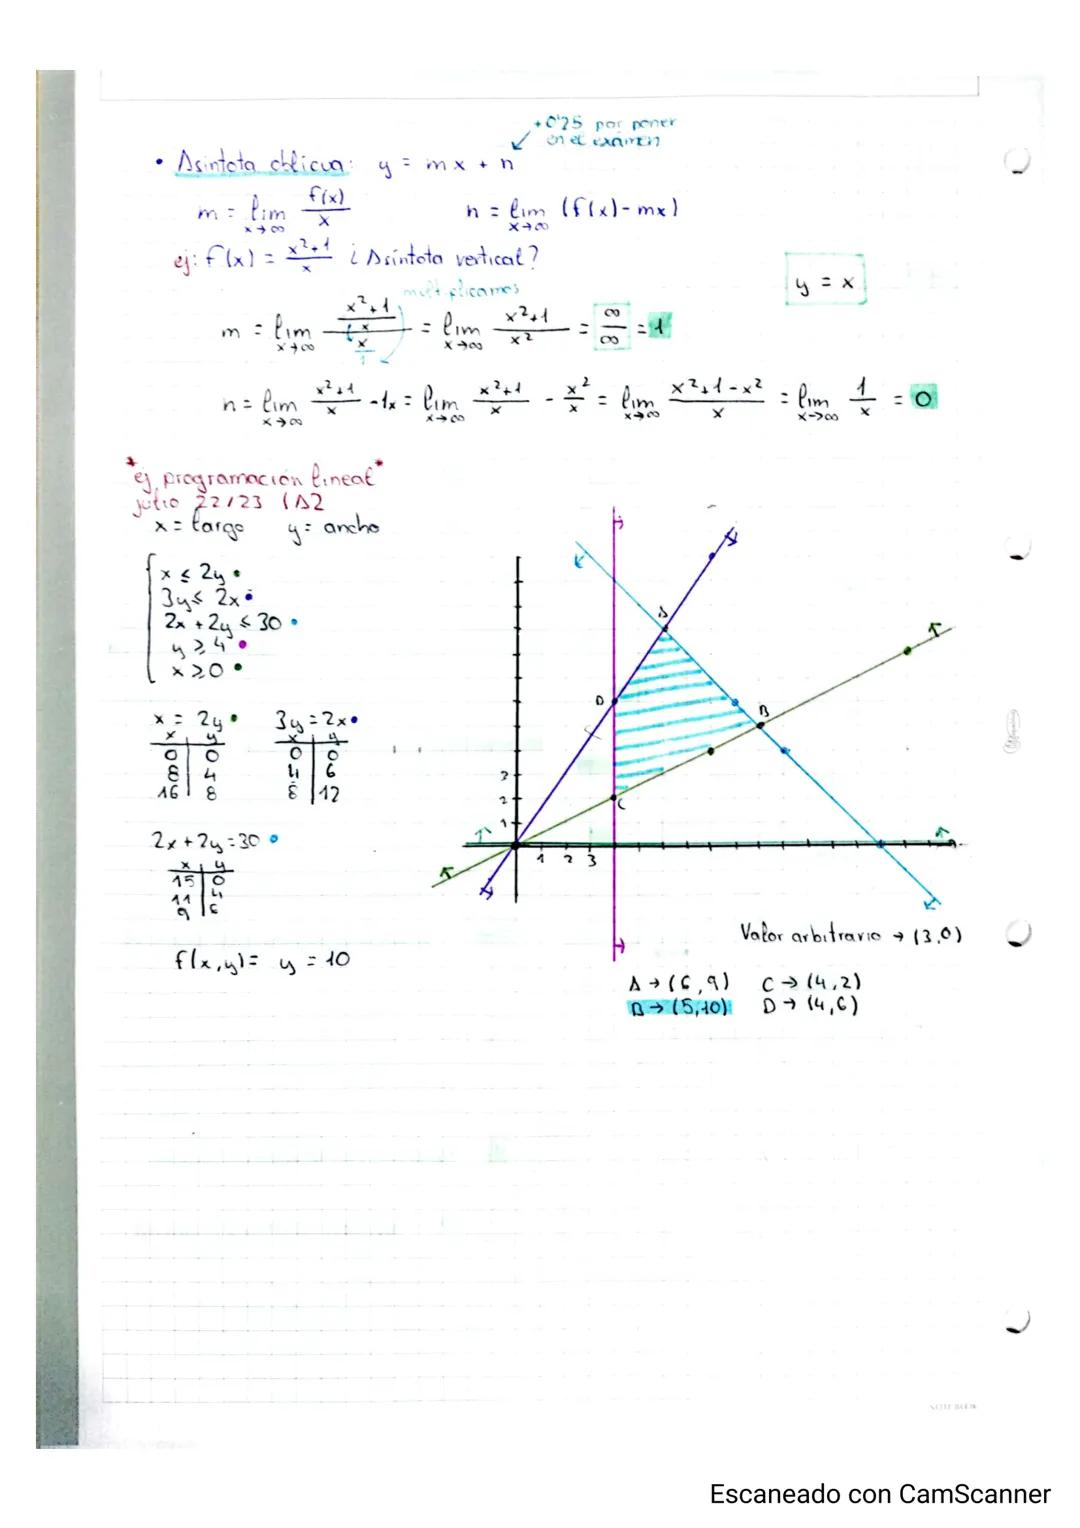 +0'25 por poner
en el examen
• Asíntota oblicua: y = mx + n
m = lim x→∞ f(x)/x    n = lim x→∞ (f(x) - mx)
ej: f(x) = x²+1/x ¿Asíntota vertical?
y = x
multiplicamos
m = lim x→∞ (x²+1/x)/(x/1) = lim x→∞ x²+1/x² = ∞/∞ = 1
n = lim x→∞ x²+1/x - 1x = lim x→∞ x²+1/x - x²/x = lim x→∞ x²+1-x²/x = lim x→∞ 1/x = 0
*ej programación lineal*
julio 22/23 (A2
x = largo    y = ancho
x ≤ 2y •
3y ≤ 2x •
2x + 2y ≤ 30 •
y ≥ 4 •
x ≥ 0 •
x = 2y •    3y = 2x •
x | y    x | y
0 | 0    0 | 0
8 | 4    4 | 6
16 | 8    8 | 12
2x + 2y = 30 •
x | y
15 | 0
11 | 4
9 | 6
f(x,y) = y = 10
A
D
B
C
2
2
1
1 2 3
Valor arbitrario → (3,0)
A → (6,9)    C → (4,2)
B → (5,10)    D → (4,6)
NOTEBOOK
Escaneado con CamScanner